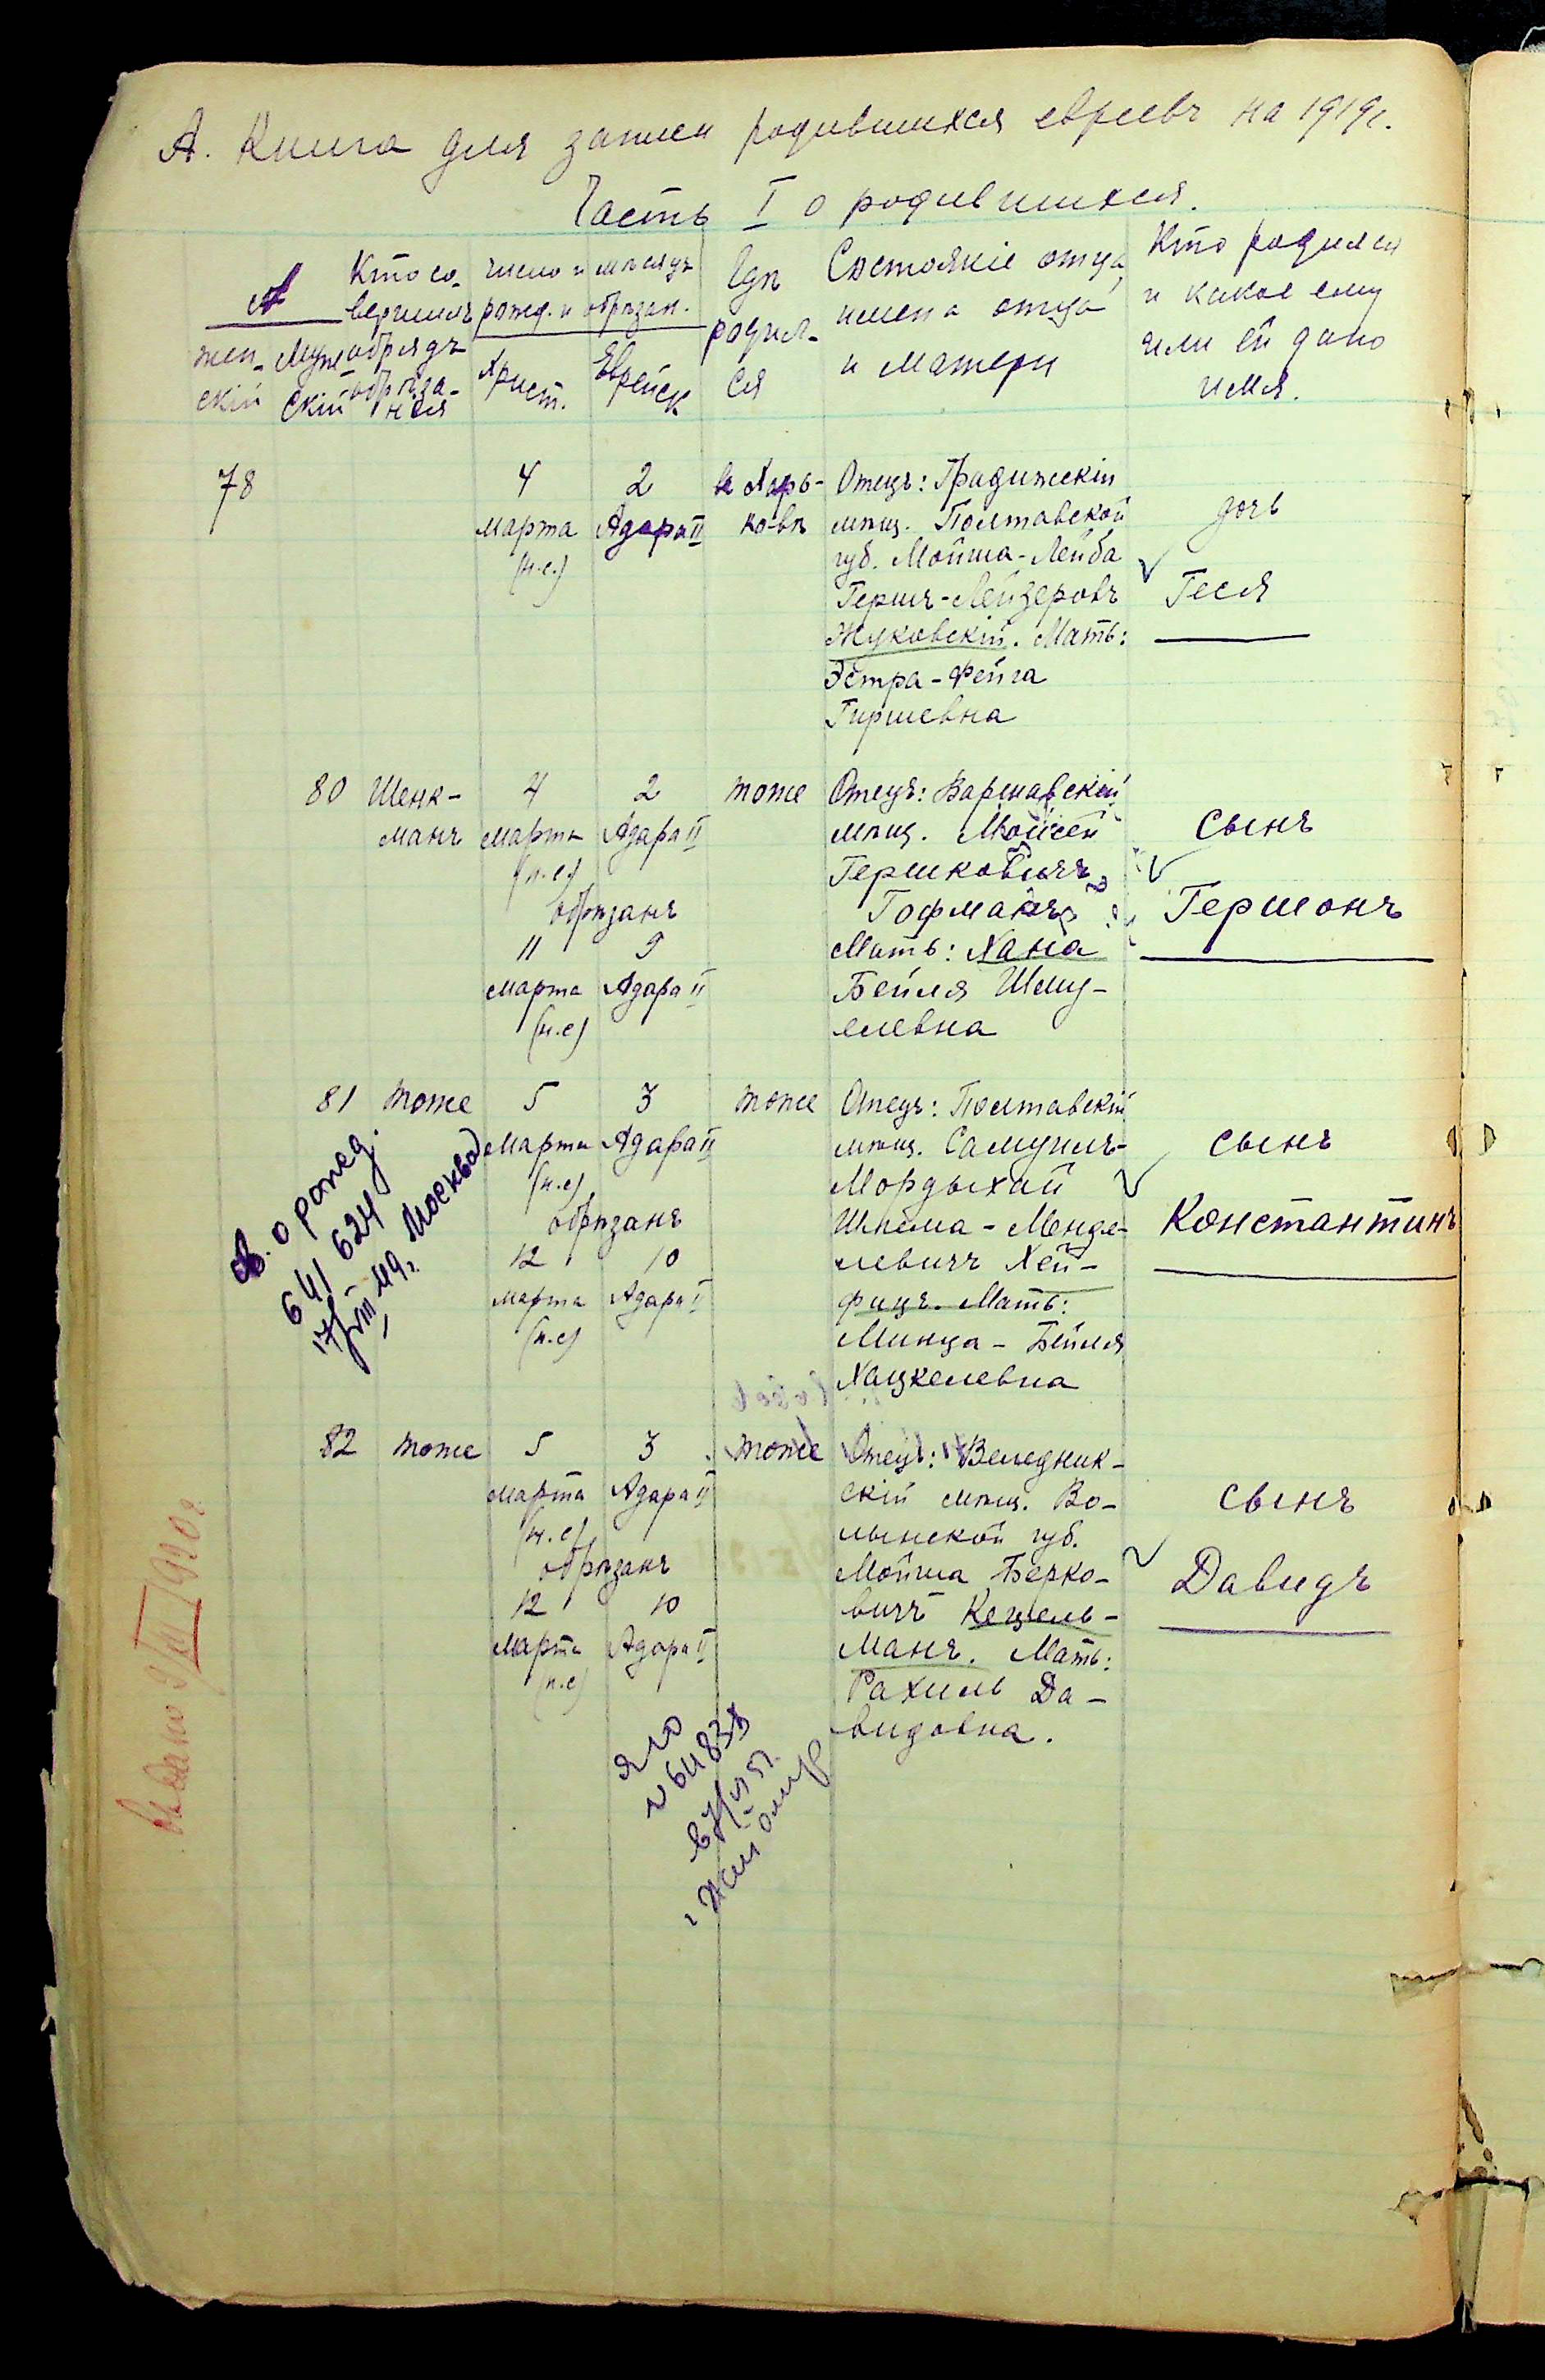 А. Книга для записи родившихся евреевъ на 1919г.
Часть I о родившихся.
№
жен-
скій
Муж
скій
Кто со-
вершилъ
обрядъ
обрѣза-
нія
Число и мѣсяцъ
рожд. и обрѣзан.
Христ.
Еврейск
Гдѣ
родил-
ся
Состояніе отца,
имена отца
и матери
Кто родился
и какое ему
или ей дано
имя.
78
4
марта
(н.с.)
2
Адара II
в Харь-
ковѣ
Отецъ: Градижскій
мѣщ. Полтавской
губ. Мойша-Лейба
Гершъ-Лейзеровъ
Жуковскій. Мать:
Эстра-Фейга
Гиршевна
дочь
Геся
80
Шенк-
манъ
4
Марта
(н.с)
2
Адара II
обрѣзанъ
11
марта
(н.с)
9
Адара II
тоже
Отецъ: Варшавскій
мѣщ. Мойсей
Гершковичъ
Гофманъ
Мать: Хана
Бейля Шму-
елевна
сынъ
Гершонъ
81
тоже
5
Марта
(н.с)
3
Адара II
обрѣзанъ
12
марта
(н.с)
10
Адара II
тоже
Отецъ: Полтавскій
мѣщ. Самуилъ-
Мордыхай
Шлема-Менде-
левичъ Хей-
фицъ. Мать:
Минца-Бейля
Хацкелевна
сынъ
Константинъ
о рожд.
641624
Москва
82
тоже
5
марта
(н.с)
3
Адара II
обрѣзанъ
12
Марта
(н.с)
10
Адара II
тоже
Отецъ: Веледник-
скій мѣщ. Во-
лынской губ.
Мойша Берко-
вичъ Кецель-
манъ. Мать:
Рахиль Да-
видовна.
сынъ
Давидъ